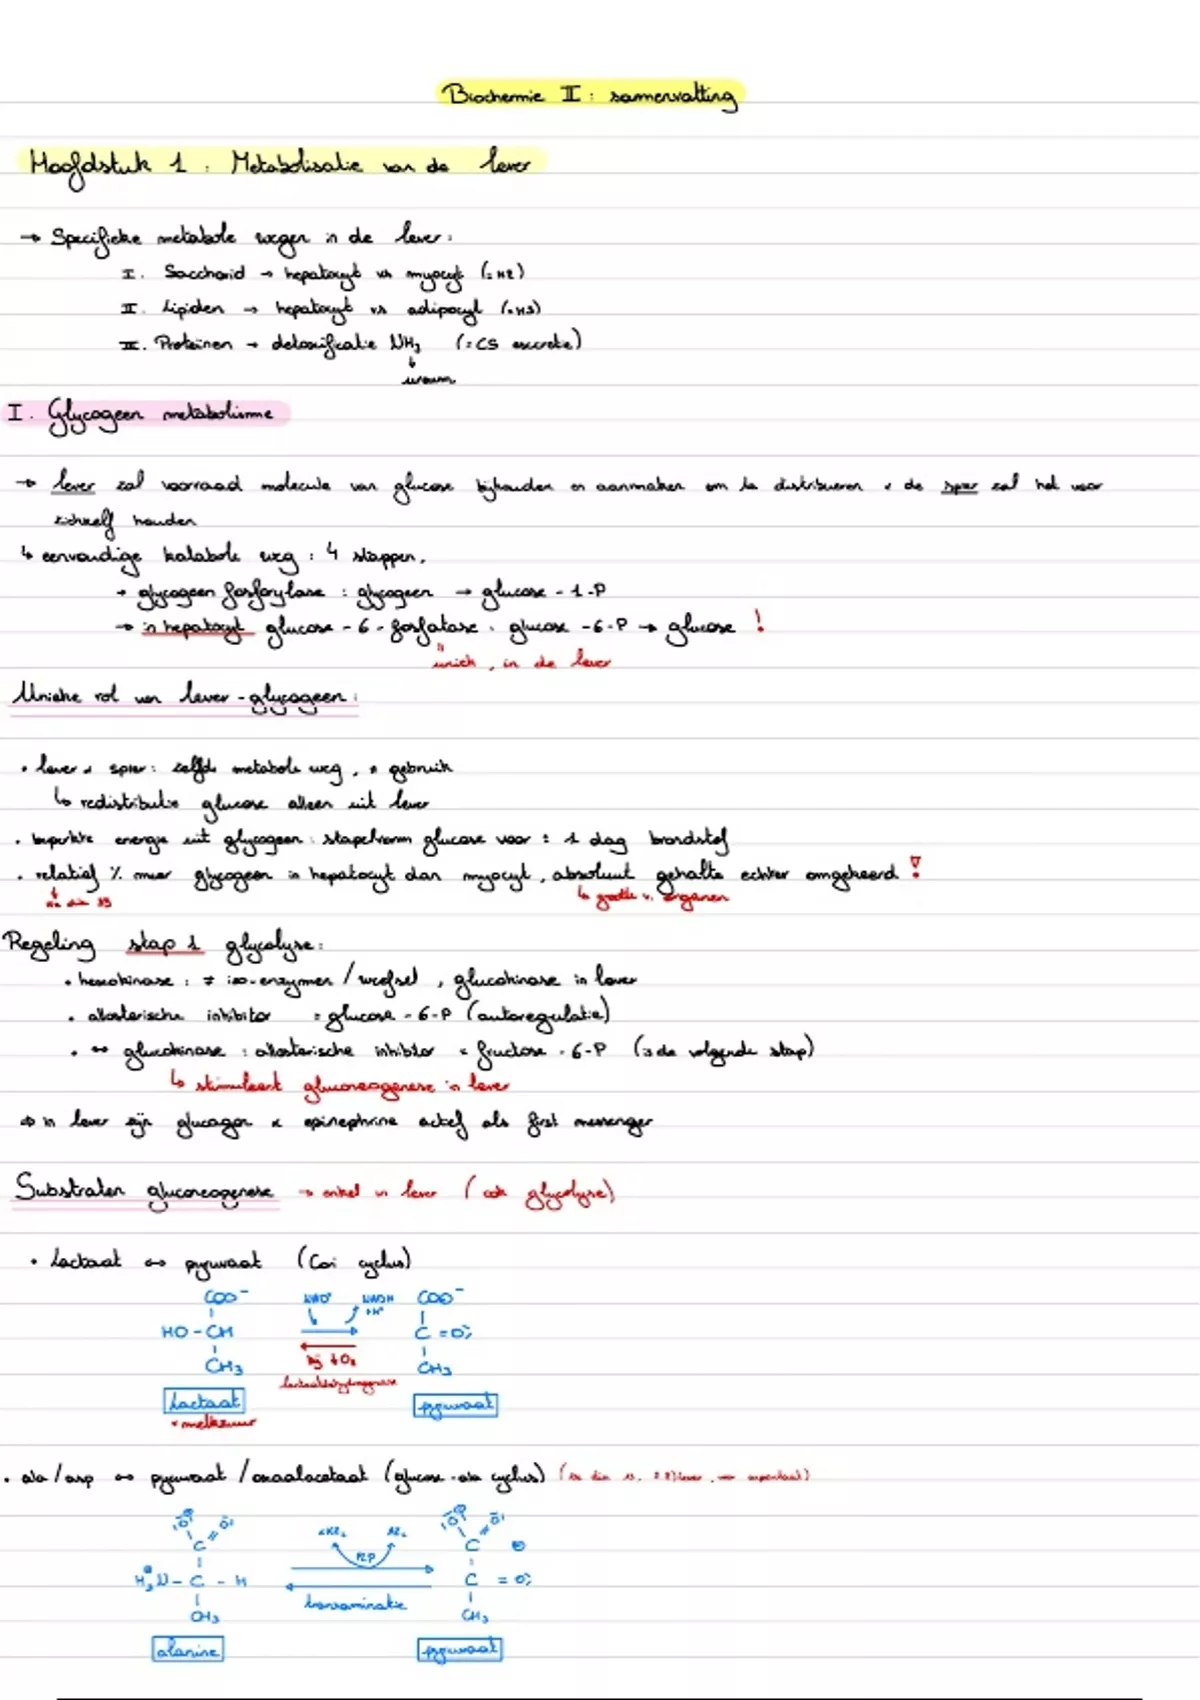 Biochemie II : samenvatting
Hoofdstuk 1 : Metabolisatie van de lever
→ Specifieke metabole wegen in de lever :
I. Saccharid → hepatocyt vs myocyt (=H2)
II. Lipiden → hepatocyt vs adipocyt (=H3)
III. Proteïnen → detoxificatie NH3 (=C5 excretie)
↓
ureum
I. Glycogeen metabolisme
→ lever zal voorraad molecule van glucose bijhouden en aanmaken om te distribueren × de spier zal het voor
zichzelf houden
↳ eenvoudige katabole weg : 4 stappen,
→ glycogeen fosforylase : glycogeen → glucose-1-P
→ in hepatocyt glucose-6-fosfatase : glucose-6-P → glucose !
uniek, in de lever
Unieke rol van lever-glycogeen :
• lever × spier : zelfde metabole weg, ≠ gebruik
↳ redistributie glucose alleen uit lever
• beperkte energie uit glycogeen : stapelvorm glucose voor ± 1 dag brandstof
• relatief % meer glycogeen in hepatocyt dan myocyt, absoluut gehalte echter omgekeerd !
↳ grootte v. organen
Regeling stap 1 glycolyse :
• hexokinase : ≠ iso-enzymen / weefsel, glucokinase in lever
• allosterische inhibitor = glucose-6-P (autoregulatie)
• ↔ glucokinase : allosterische inhibitor = fructose-6-P (= de volgende stap)
↳ stimuleert gluconeogenese in lever
⇒ in lever zijn glucagon × epinephrine actief als first messenger
Substraten gluconeogenese → enkel in lever (ook glycolyse)
• Lactaat ↔ pyruvaat (Cori cyclus)
COO⁻ NAD⁺ NADH COO⁻
+H⁺
HO - CH C = O
bij ↓O2
CH3 CH3
lactaatdehydrogenase
lactaat pyruvaat
= melkzuur
• ala/asp ↔ pyruvaat / oxaalacetaat (glucose-ala cyclus)
O O O O
C C ⊖
PLP
H3N - C - H C = O
transaminatie
CH3 CH3
alanine pyruvaat